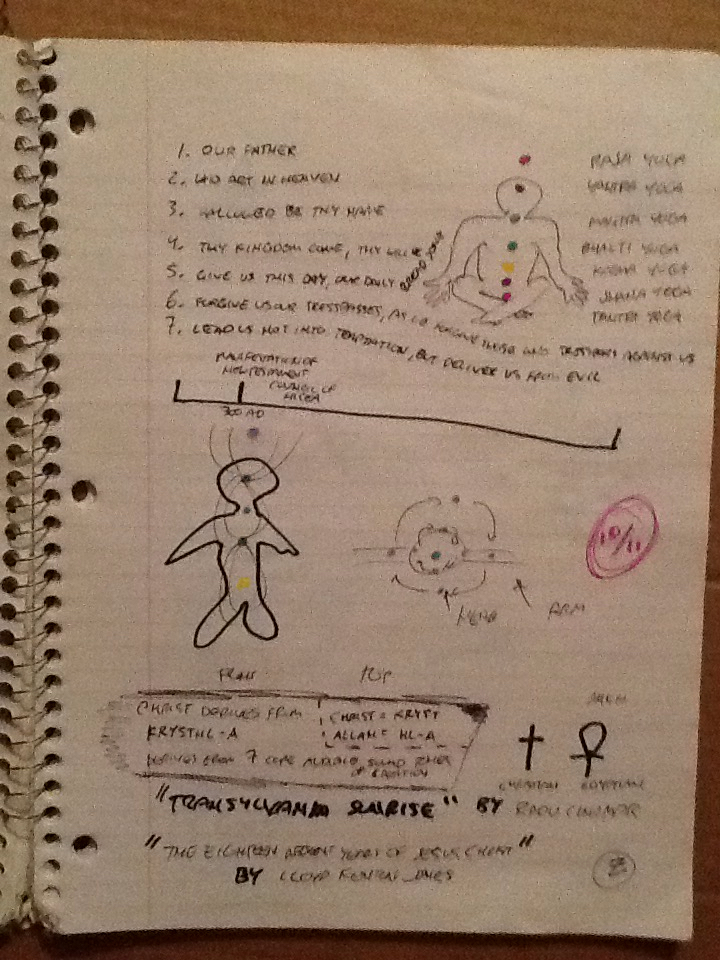 1. OUR FATHER
2. WHO ART IN HEAVEN
3. HALLOWED BE THY NAME
4. THY KINGDOM COME, THY WILL BE DONE
5. GIVE US THIS DAY, OUR DAILY BREAD
6. FORGIVE US OUR TRESSPASSES, AS WE FORGIVE THOSE WHO TRESSPASS AGAINST US
7. LEAD US NOT INTO TEMPTATION, BUT DELIVER US FROM EVIL
RAJA YOGA
YANTRA YOGA
MANTRA YOGA
BHAKTI YOGA
YOGA
JNANA YOGA
TANTRA YOGA
MANIFESTATION OF
NEW TESTAMENT
COUNCIL OF
NICEA
300 AD
10/11
HEAD
ARM
FRONT
TOP
CHRIST DERIVES FROM
KRYSTHL-A
CHRIST = KRYST
ALLAH = HL-A
DERIVES FROM 7 CORE AUDIBLE SOUND TONES
OF CREATION
ANKH
CHRISTIAN
EGYPTIAN
"TRANSYLVANIA SUNRISE" BY RADU CINAMAR
"THE EIGHTEEN ABSENT YEARS OF JESUS CHRIST"
BY LLOYD KENYON JONES